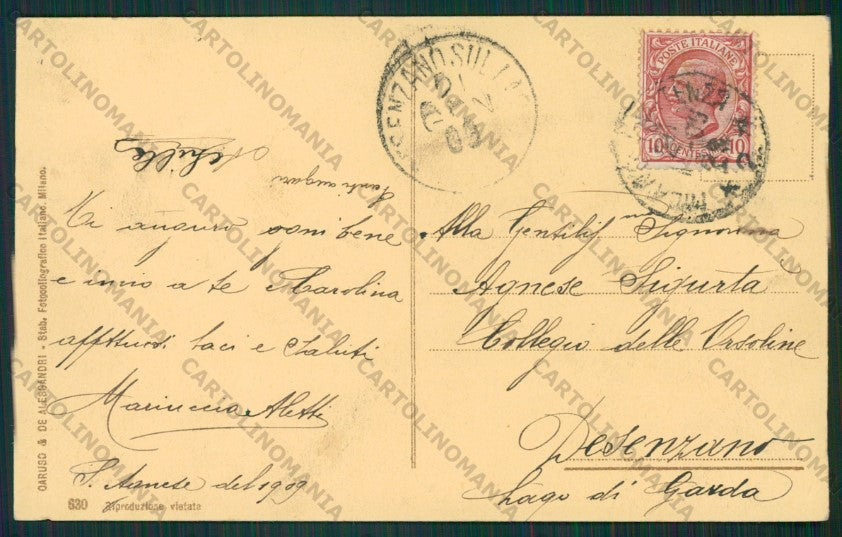 Achille
Tanti auguri
Ti auguro ogni bene
e invio a te Carolina
affttuosi baci e saluti
Mariuccia Aletti
S. Agnese del 1909
CARUSO & DE ALESSANDRI - Stab. Fotocollografico Italiano. Milano.
630 Riproduzione vietata
DESENZANO SUL LAGO
POSTE ITALIANE
10 CENTESIMI 10
Alla Gentilis Signorina
Agnese Sigurtà
Collegio delle Orsoline
Desenzano
Lago di Garda
CARTOLINOMANIA